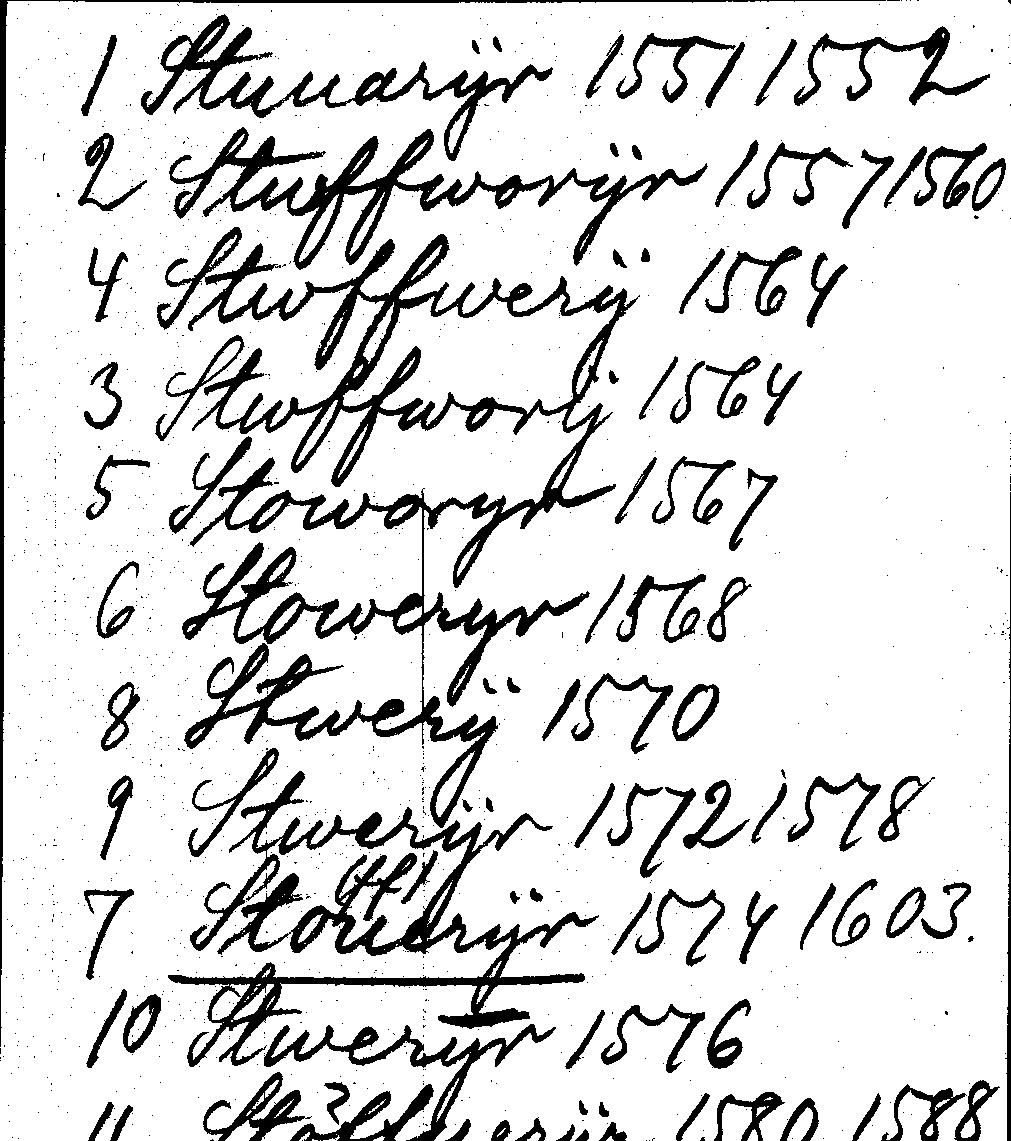 1 Stuuarÿr 1551 1552
2 Stuffworÿr 1557 1560
4 Stwffwerÿ 1564
3 Stwffworÿ 1564
5 Stoworyr 1567
6 Stoweryr 1568
8 Stwerÿ 1570
9 Stwerÿr 1572 1578
(ff)
7 Stouerÿr 1574 1603.
10 Stweryr 1576
11 1580 1588